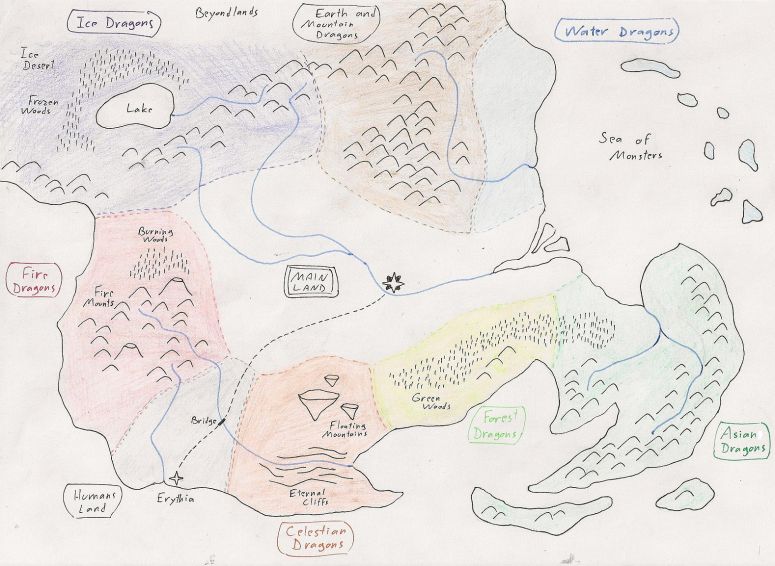 Ice Dragons
Beyondlands
Earth and
Mountain
Dragons
Water Dragons
Ice
Desert
Frozen
Woods
Lake
Sea of
Monsters
Burning
Woods
Fire
Dragons
Fire
Mounts
MAIN
LAND
Green
Woods
Bridge
Floating
Mountains
Forest
Dragons
Asian
Dragons
Humans
Land
Erythia
Eternal
Cliffs
Celestian
Dragons